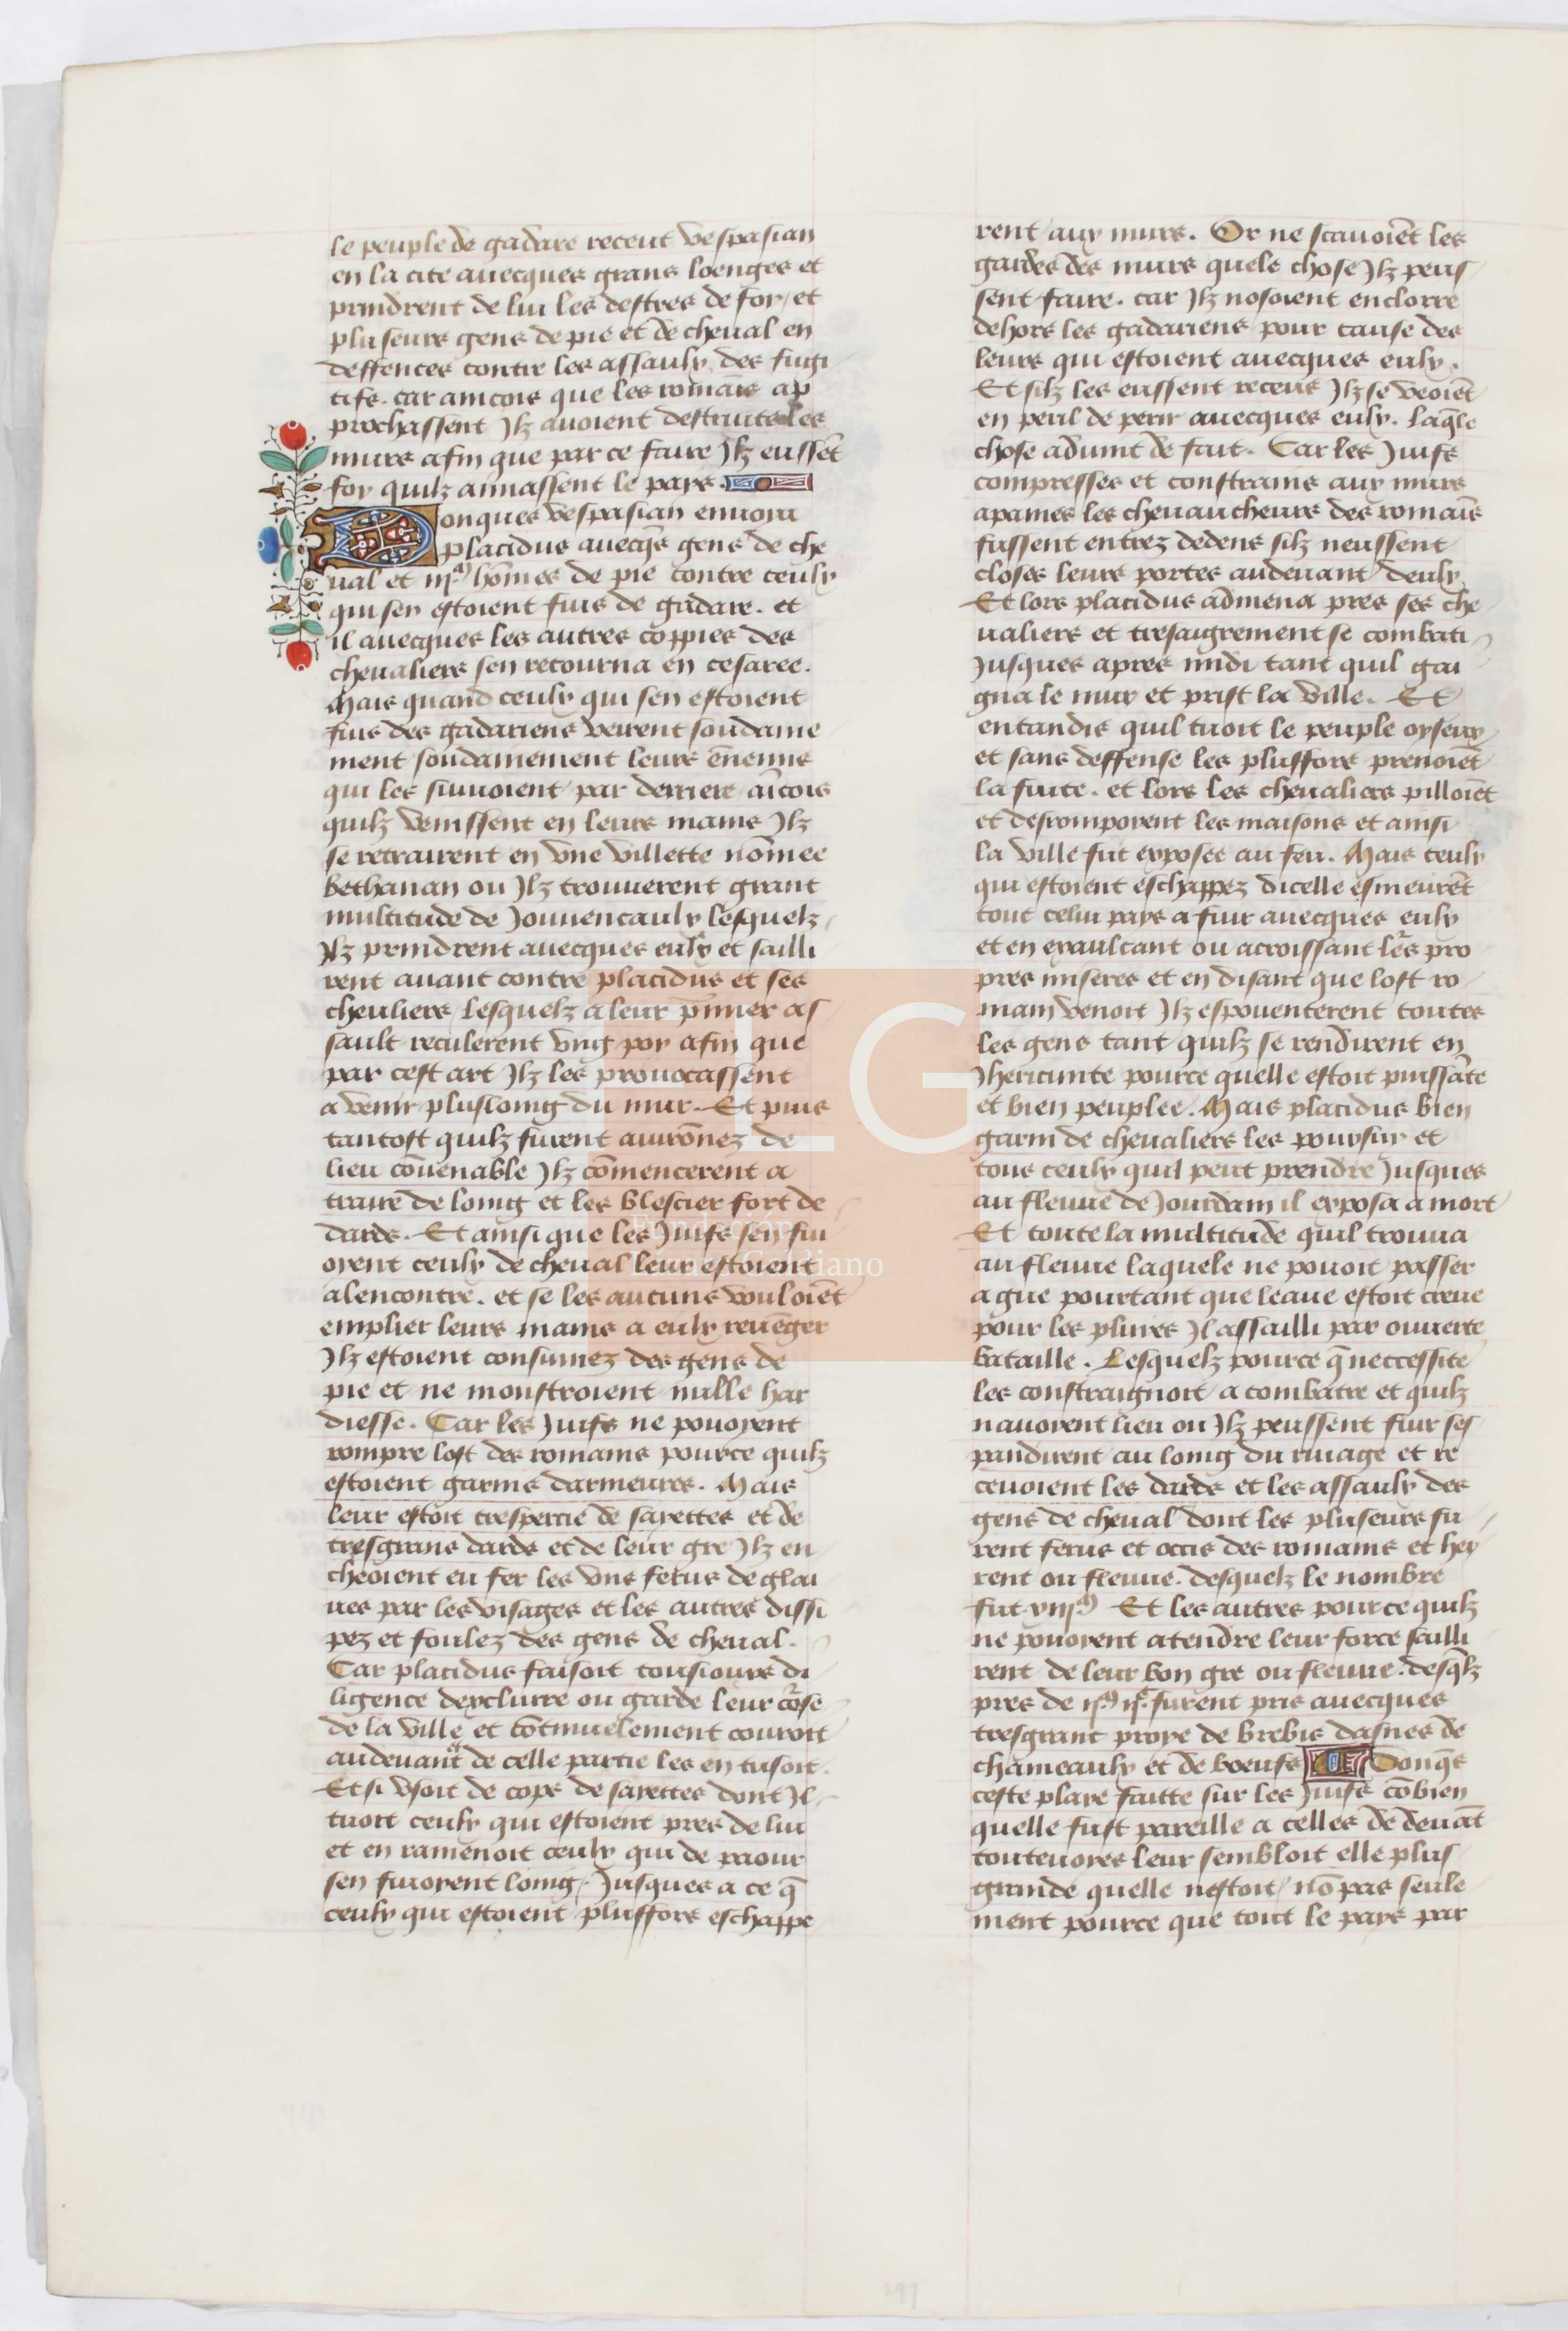 le peuple de gadare receut vespasian
en la cite auecques grans loenges et
prindrent de lui les destres de foy, et
pluseurs gens de pie et de cheual en
deffences contre les assaulx des fugi
tifs. car aincois que les romais ap
prochassent Jlz auoient destruites les
murs afin que par ce faire Jlz eussēt
foy quilz amassent le pays.
Donques vespasian enuoia
placidus auecq̄s gens de che
ual et iijᵃ hōmes de pie contre ceulx
qui sen estoient fuis de gadare. et
il auecques les autres coppies des
cheualiers sen retourna en cesaree.
Mais quand ceulx qui sen estoient
fuis des gadariens veirent soudaine
ment soudainement leurs ēnemis
qui les suiuoient par derriere aīcois
quilz venissent en leurs mains Jlz
se retrairent en vne villette nōmee
bethanan ou Jlz trouuerent grant
multitude de Jouuenceaulx lesquelz
Jlz prindrent auecques eulx et sailli
rent auant contre placidus et ses
cheuliers, Lesquelz a leur p̄mier as
sault reculerent vng poy afin que
par cest art Jlz les prouocassent
a venir plus loing du mur. Et puis
tantost quilz furent auirōnez de
lieu cōuenable Jlz cōmencerent a
traire de loing et les blescier fort de
dards. Et ainsi que les Juifs sen fui
oyent ceulx de cheual leur estoient
alencontre. et se les aucuns vouloiēt
emplier leurs mains a eulx reuēger
Jlz estoient consumez des gens de
pie et ne monstroient nulle har
diesse. Car les Juifs ne pouoyent
rompre lost des romains pource quilz
estoient garnis darmeures. Mais
leur estoit trespercie de sayettes et de
tresgrans dards et de leur gre Jlz en
cheoient eu fer les vns ferus de glai
ues par les visages et les autres dissi
pez et foulez des gens de cheual.
Car placidus faisoit tousiours di
ligence dexclurre ou garde leur cōrse
de la ville et cōtinuelement couroit
audeuant et de celle partie les en tusoit.
Et si vsoit de cops de sayettes dont Jl
tuoit ceulx qui estoient pres de lui
et en ramenoit ceulx qui de paour
sen fuioyent loing. Jusques a ce q̄
ceulx qui estoient plussfors eschappe
rent aux murs. Or ne scauoiēt les
gardes des murs quele chose Jlz peus
sent faire. car Jlz nosoient enclorre
dehors les gadariens pour cause des
leurs qui estoient auecques eulx.
Et silz les eussent receus Jlz se veoiēt
en peril de perir auecques eulx. laq̄le
chose aduint de fait. Car les Juifs
compresses et constrains aux murs
apaines les cheuaucheurs des romaīs
fussent entrez dedens silz neussent
closes leurs portes audeuant deulx
Et lors placidus admena pres ses che
ualiers et tresaigrement se combati
Jusques apres midi tant quil gai
gna le mur et prist la ville. Et
entandis quil tuoit le peuple oyseux
et sans deffense les plussfors prenoiēt
la fuite. et lors les cheualiers pilloiēt
et desrompoyent les maisons et ainsi
la ville fut exposee au feu. Mais ceulx
qui estoient eschappez dicelle esmeurēt
tout celui pays a fuir auecques eulx
et en exaultant ou acroissant lr̄s pro
pres miseres et en disant que lost ro
main venoit Jlz espouenterent toutes
les gens tant quilz se rendirent en
Jhericunte pource quelle estoit puissāte
et bien peuplee. Mais placidus bien
garni de cheualiers les poursuy et
tous ceulx quil peut prendre Jusques
au fleuue de Jourdain il exposa a mort
Et toute la multitude quil trouua
au fleuue laquele ne pouoit passer
a gue pourtant que leaue estoit creue
pour les pluies Jl assailli par ouuerte
bataille. Lesquelz pource q̄ neccessite
les constraignoit a combatre et quilz
nauoyent lieu ou Jlz peussent fuir ses
pandirent au loing du riuage et re
ceuoient les dards et les assaulx des
gens de cheual dont les pluseurs fu
rent ferus et occis des romains et hey
rent ou fleuue. desquelz le nombre
fut xiijᵃ Et les autres pource quilz
ne pouoyent atendre leur force sailli
rent de leur bon gre ou fleuue. desq̄lz
pres de ijᵃ ijᶜ. furent pris auecques
tresgrant proye de brebis dasnes de
chameaulx et de boeufs Donq̄s
ceste playe faitte sur les Juifs cōbien
quelle fust pareille a celles de deuāt
touteuoyes leur sembloit elle plus
grande quelle nestoit, nō pas seule
ment pource que tout le pays par
LG
Fundación
Lázaro Galdiano
297